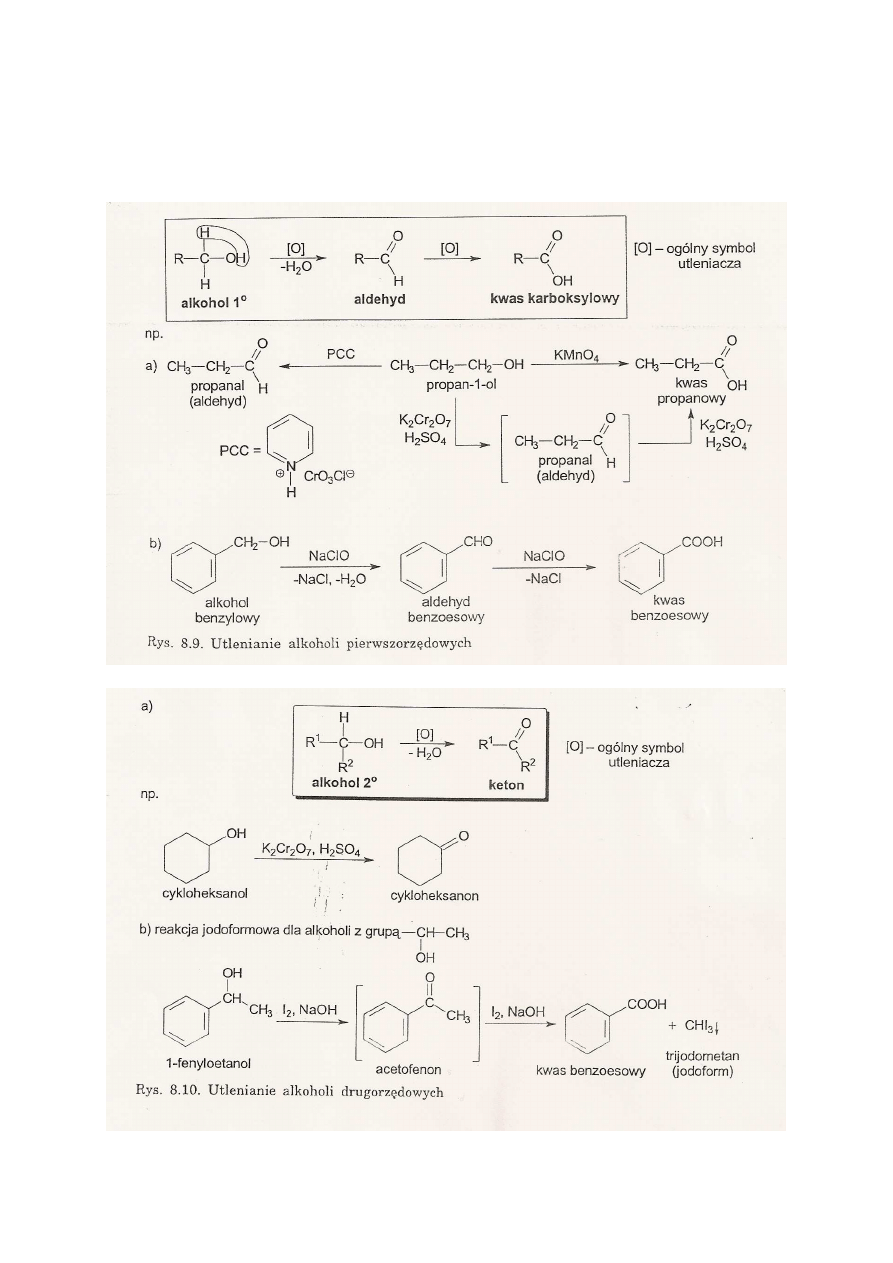 H
R—C—OH
H
alkohol 1°
[O]
-H₂O
O
R—C
H
aldehyd
[O]
O
R—C
OH
kwas karboksylowy
[O] – ogólny symbol
utleniacza
np.
a) CH₃—CH₂—C
O
H
propanal
(aldehyd)
PCC
CH₃—CH₂—CH₂—OH
propan-1-ol
KMnO₄
CH₃—CH₂—C
O
OH
kwas
propanowy
PCC =
N
⊕
H
CrO₃Cl⊖
K₂Cr₂O₇
H₂SO₄
CH₃—CH₂—C
O
H
propanal
(aldehyd)
K₂Cr₂O₇
H₂SO₄
b)
CH₂—OH
alkohol
benzylowy
NaClO
-NaCl, -H₂O
CHO
aldehyd
benzoesowy
NaClO
-NaCl
COOH
kwas
benzoesowy
Rys. 8.9. Utlenianie alkoholi pierwszorzędowych
a)
H
R¹—C—OH
R²
alkohol 2°
[O]
- H₂O
O
R¹—C
R²
keton
[O] – ogólny symbol
utleniacza
np.
OH
cykloheksanol
K₂Cr₂O₇, H₂SO₄
O
cykloheksanon
b) reakcja jodoformowa dla alkoholi z grupą —CH—CH₃
OH
OH
CH
CH₃
1-fenyloetanol
I₂, NaOH
O
C
CH₃
acetofenon
I₂, NaOH
COOH
kwas benzoesowy
+ CHI₃↓
trijodometan
(jodoform)
Rys. 8.10. Utlenianie alkoholi drugorzędowych